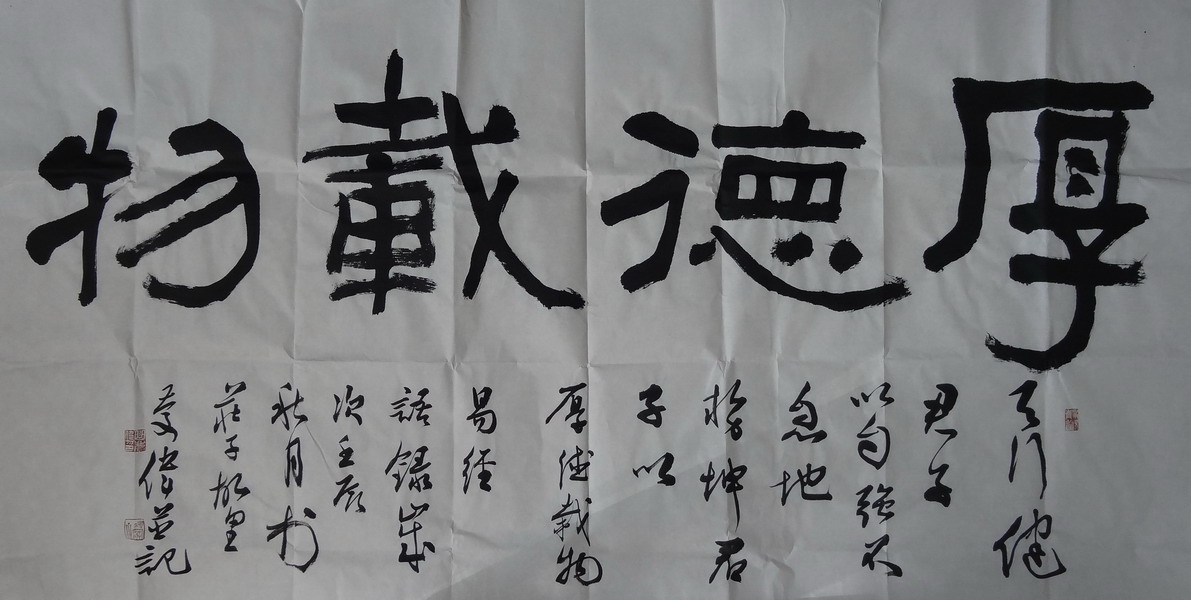 厚德載物
天行健
君子
以自強不
息地
势坤君
子以
厚德载物
易經
語錄歲
次壬辰
秋月於
莊子故里
偉並記